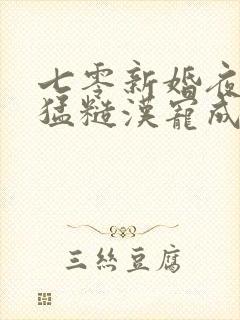 七零新婚夜
猛糙漢寵成
三絲豆腐